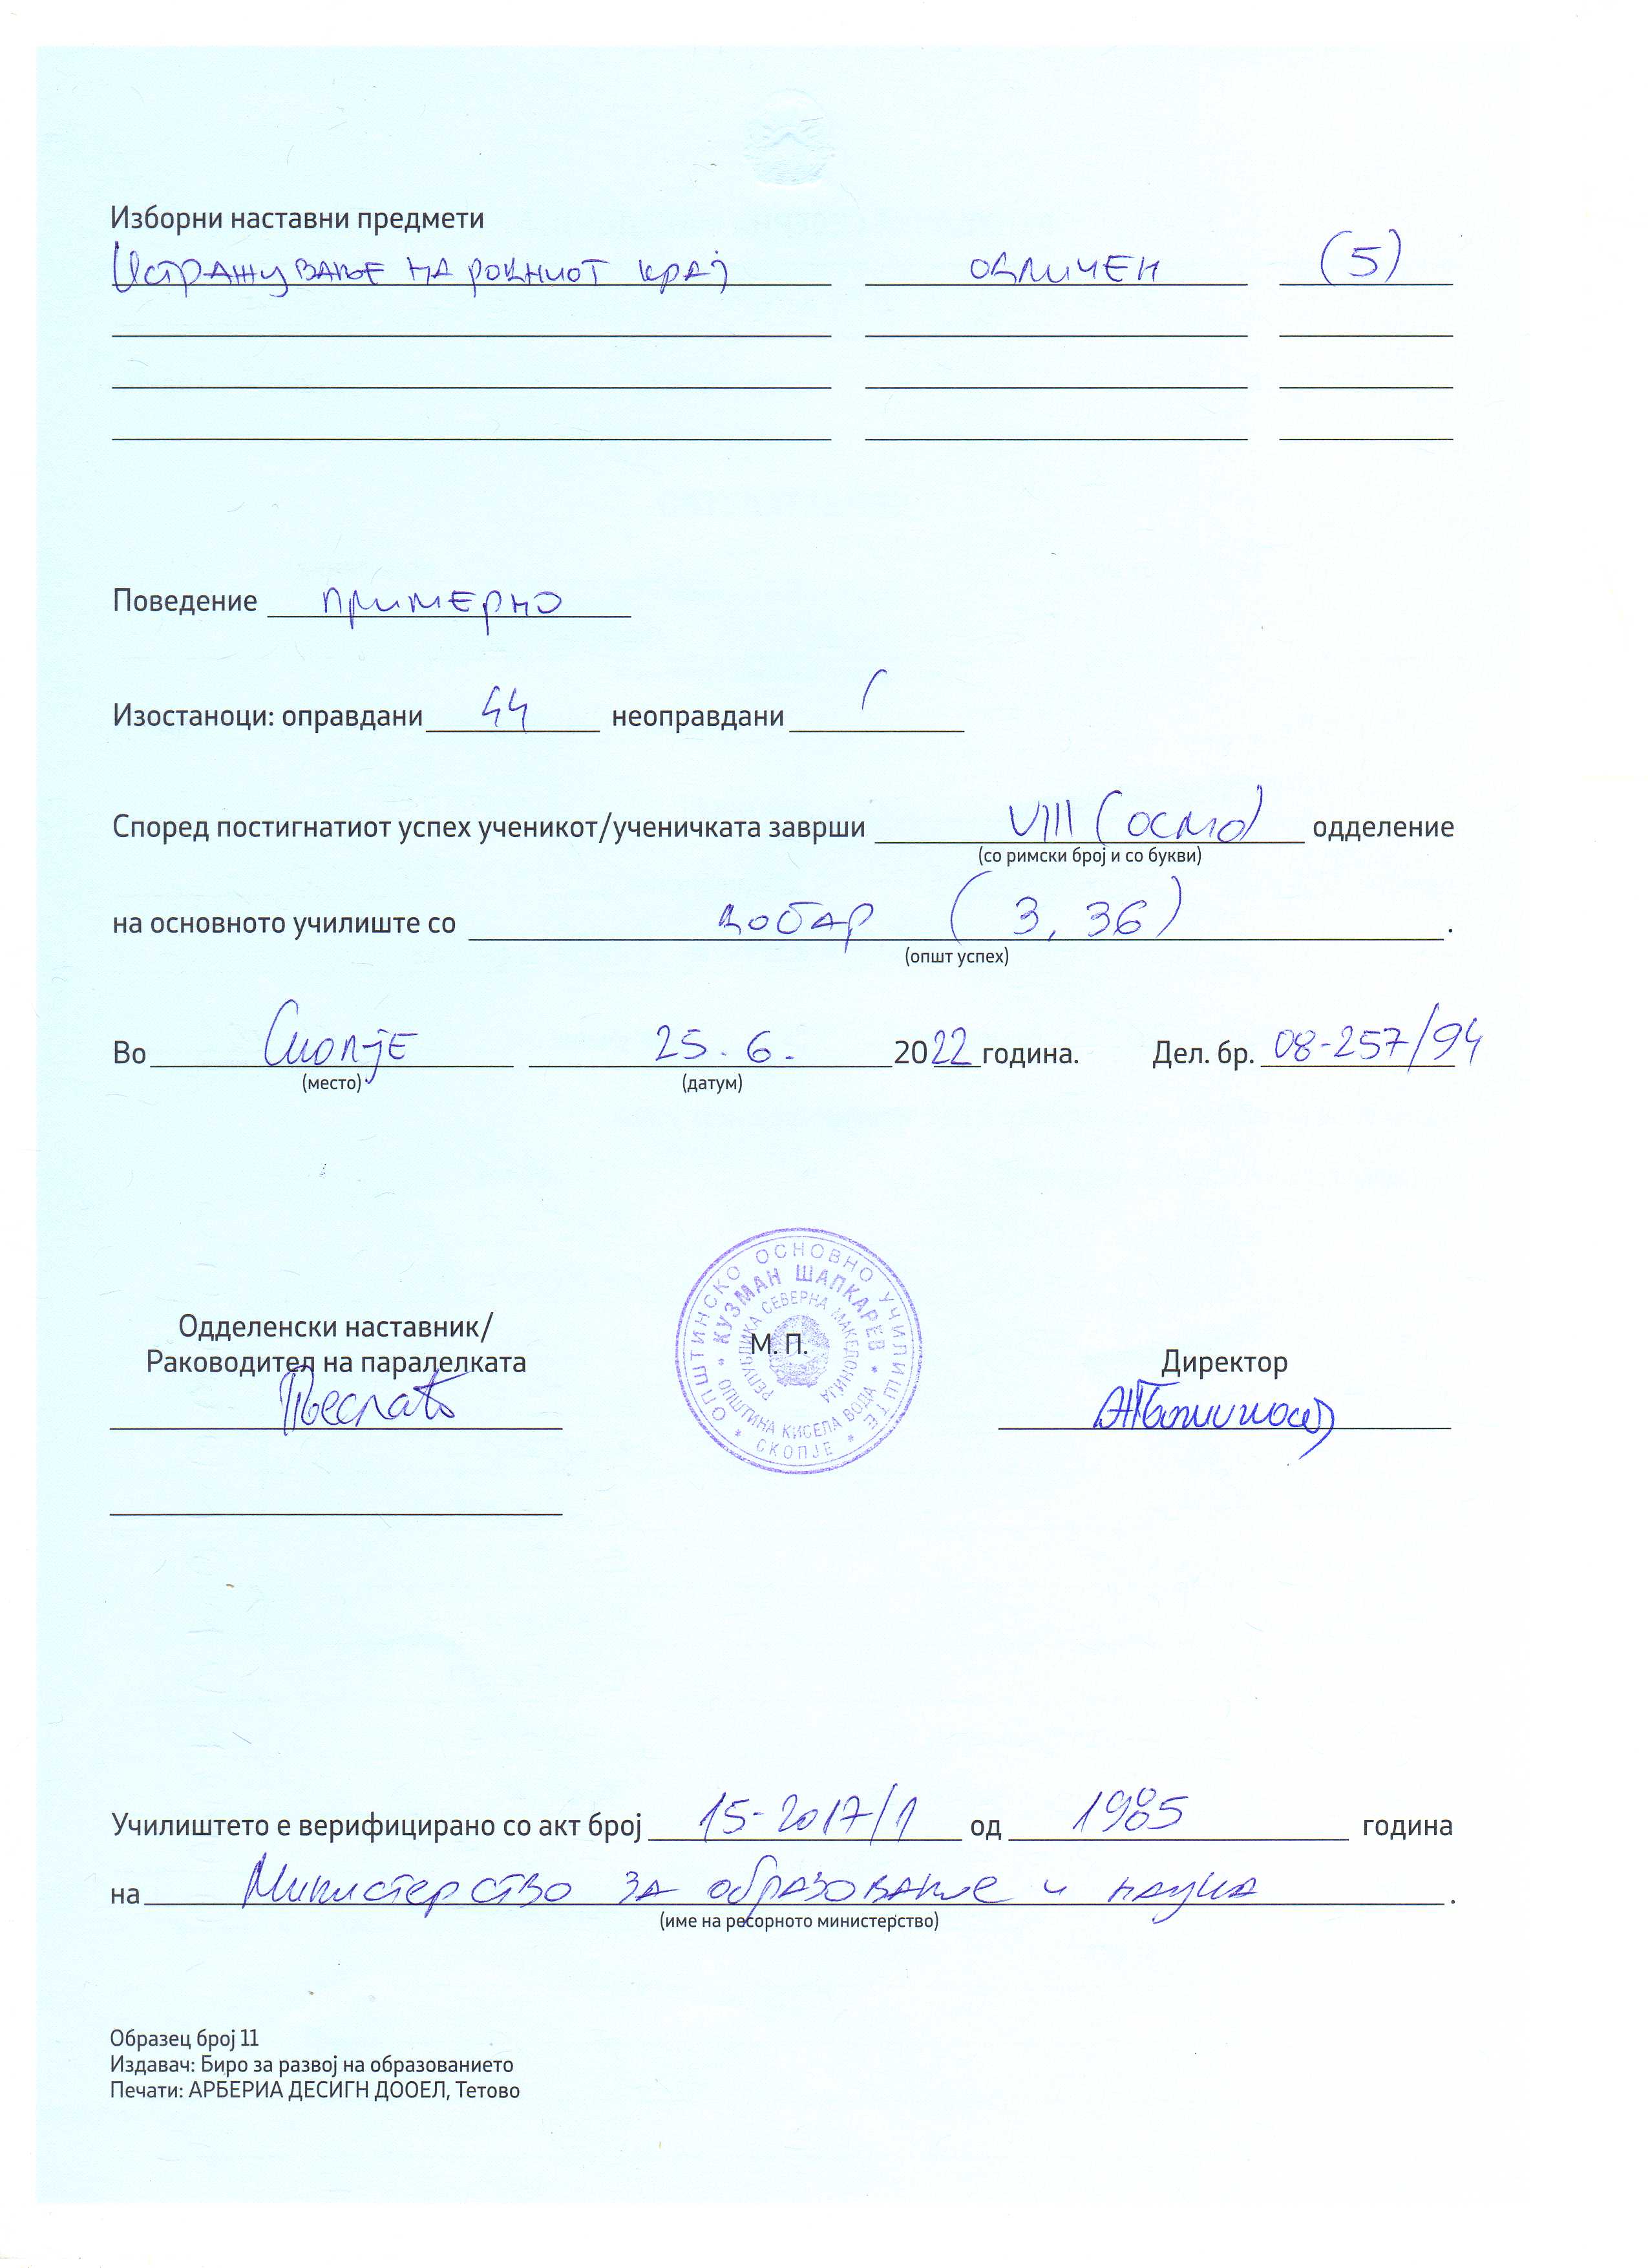 Изборни наставни предмети
Истражување на родниот крај одличен (5)
Поведение примерно
Изостаноци: оправдани 44 неоправдани /
Според постигнатиот успех ученикот/ученичката заврши VIII (осмо) одделение
(со римски број и со букви)
на основното училиште со добар (3,36).
(општ успех)
Во Скопје 25.6. 2022 година. Дел. бр. 08-257/94
(место) (датум)
ОПШТИНСКО ОСНОВНО УЧИЛИШТЕ * СКОПЈЕ *
"КУЗМАН ШАПКАРЕВ" * ОПШТИНА КИСЕЛА ВОДА *
РЕПУБЛИКА СЕВЕРНА МАКЕДОНИЈА
М. П.
Одделенски наставник/
Раководител на паралелката
Директор
Училиштето е верифицирано со акт број 15-2017/1 од 1985 година
на Министерство за образование и наука.
(име на ресорното министерство)
Образец број 11
Издавач: Биро за развој на образованието
Печати: АРБЕРИА ДЕСИГН ДООЕЛ, Тетово